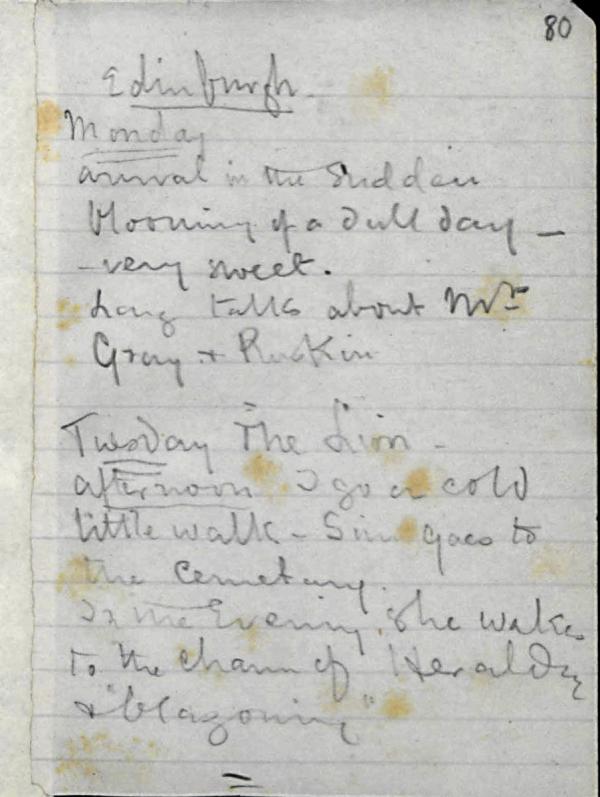 80
Edinburgh.
Monday
arrival in the sudden
blooming of a dull day —
– very sweet.
Long talks about Mr
Gray + Ruskin
Tuesday The Lion -
afternoon I go a cold
little walk - Sim goes to
the cemetary.
In the Evening. She wakes
to the charm of Heraldry
+ "blazoning"